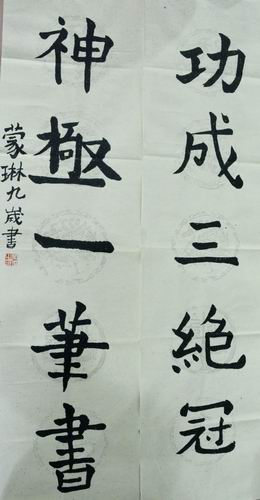 功成三絶冠
神極一筆書
蒙琳九歲書